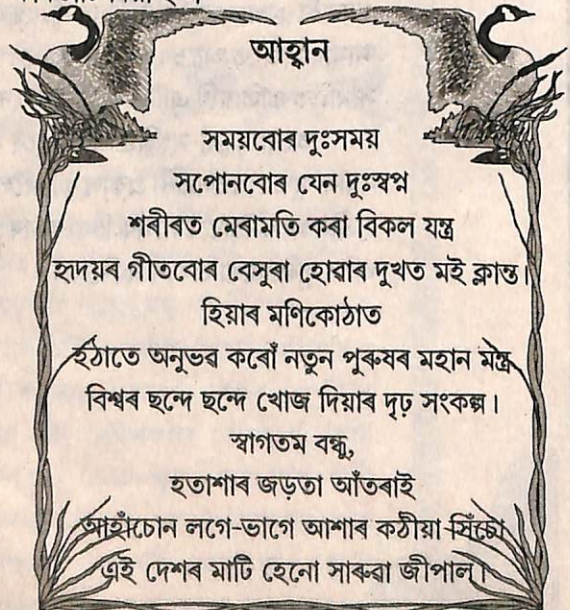 আহ্বান
সময়বোৰ দুঃসময়
সপোনবোৰ যেন দুঃস্বপ্ন
শৰীৰত মেৰামতি কৰা বিকল যন্ত্ৰ
হৃদয়ৰ গীতবোৰ বেসুৰা হোৱাৰ দুখত মই ক্লান্ত।
হিয়াৰ মণিকোঠাত
হঠাতে অনুভৱ কৰোঁ নতুন পুৰুষৰ মহান মন্ত্ৰ
বিশ্বৰ ছন্দে ছন্দে খোজ দিয়াৰ দৃঢ় সংকল্প।
স্বাগতম বন্ধু,
হতাশাৰ জড়তা আঁতৰাই
আহাঁচোন লগে-ভাগে আশাৰ কঠীয়া সিঁচো
এই দেশৰ মাটি হেনো সাৰুৱা জীপাল।